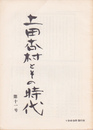 土田杏村とその時代
第十一号